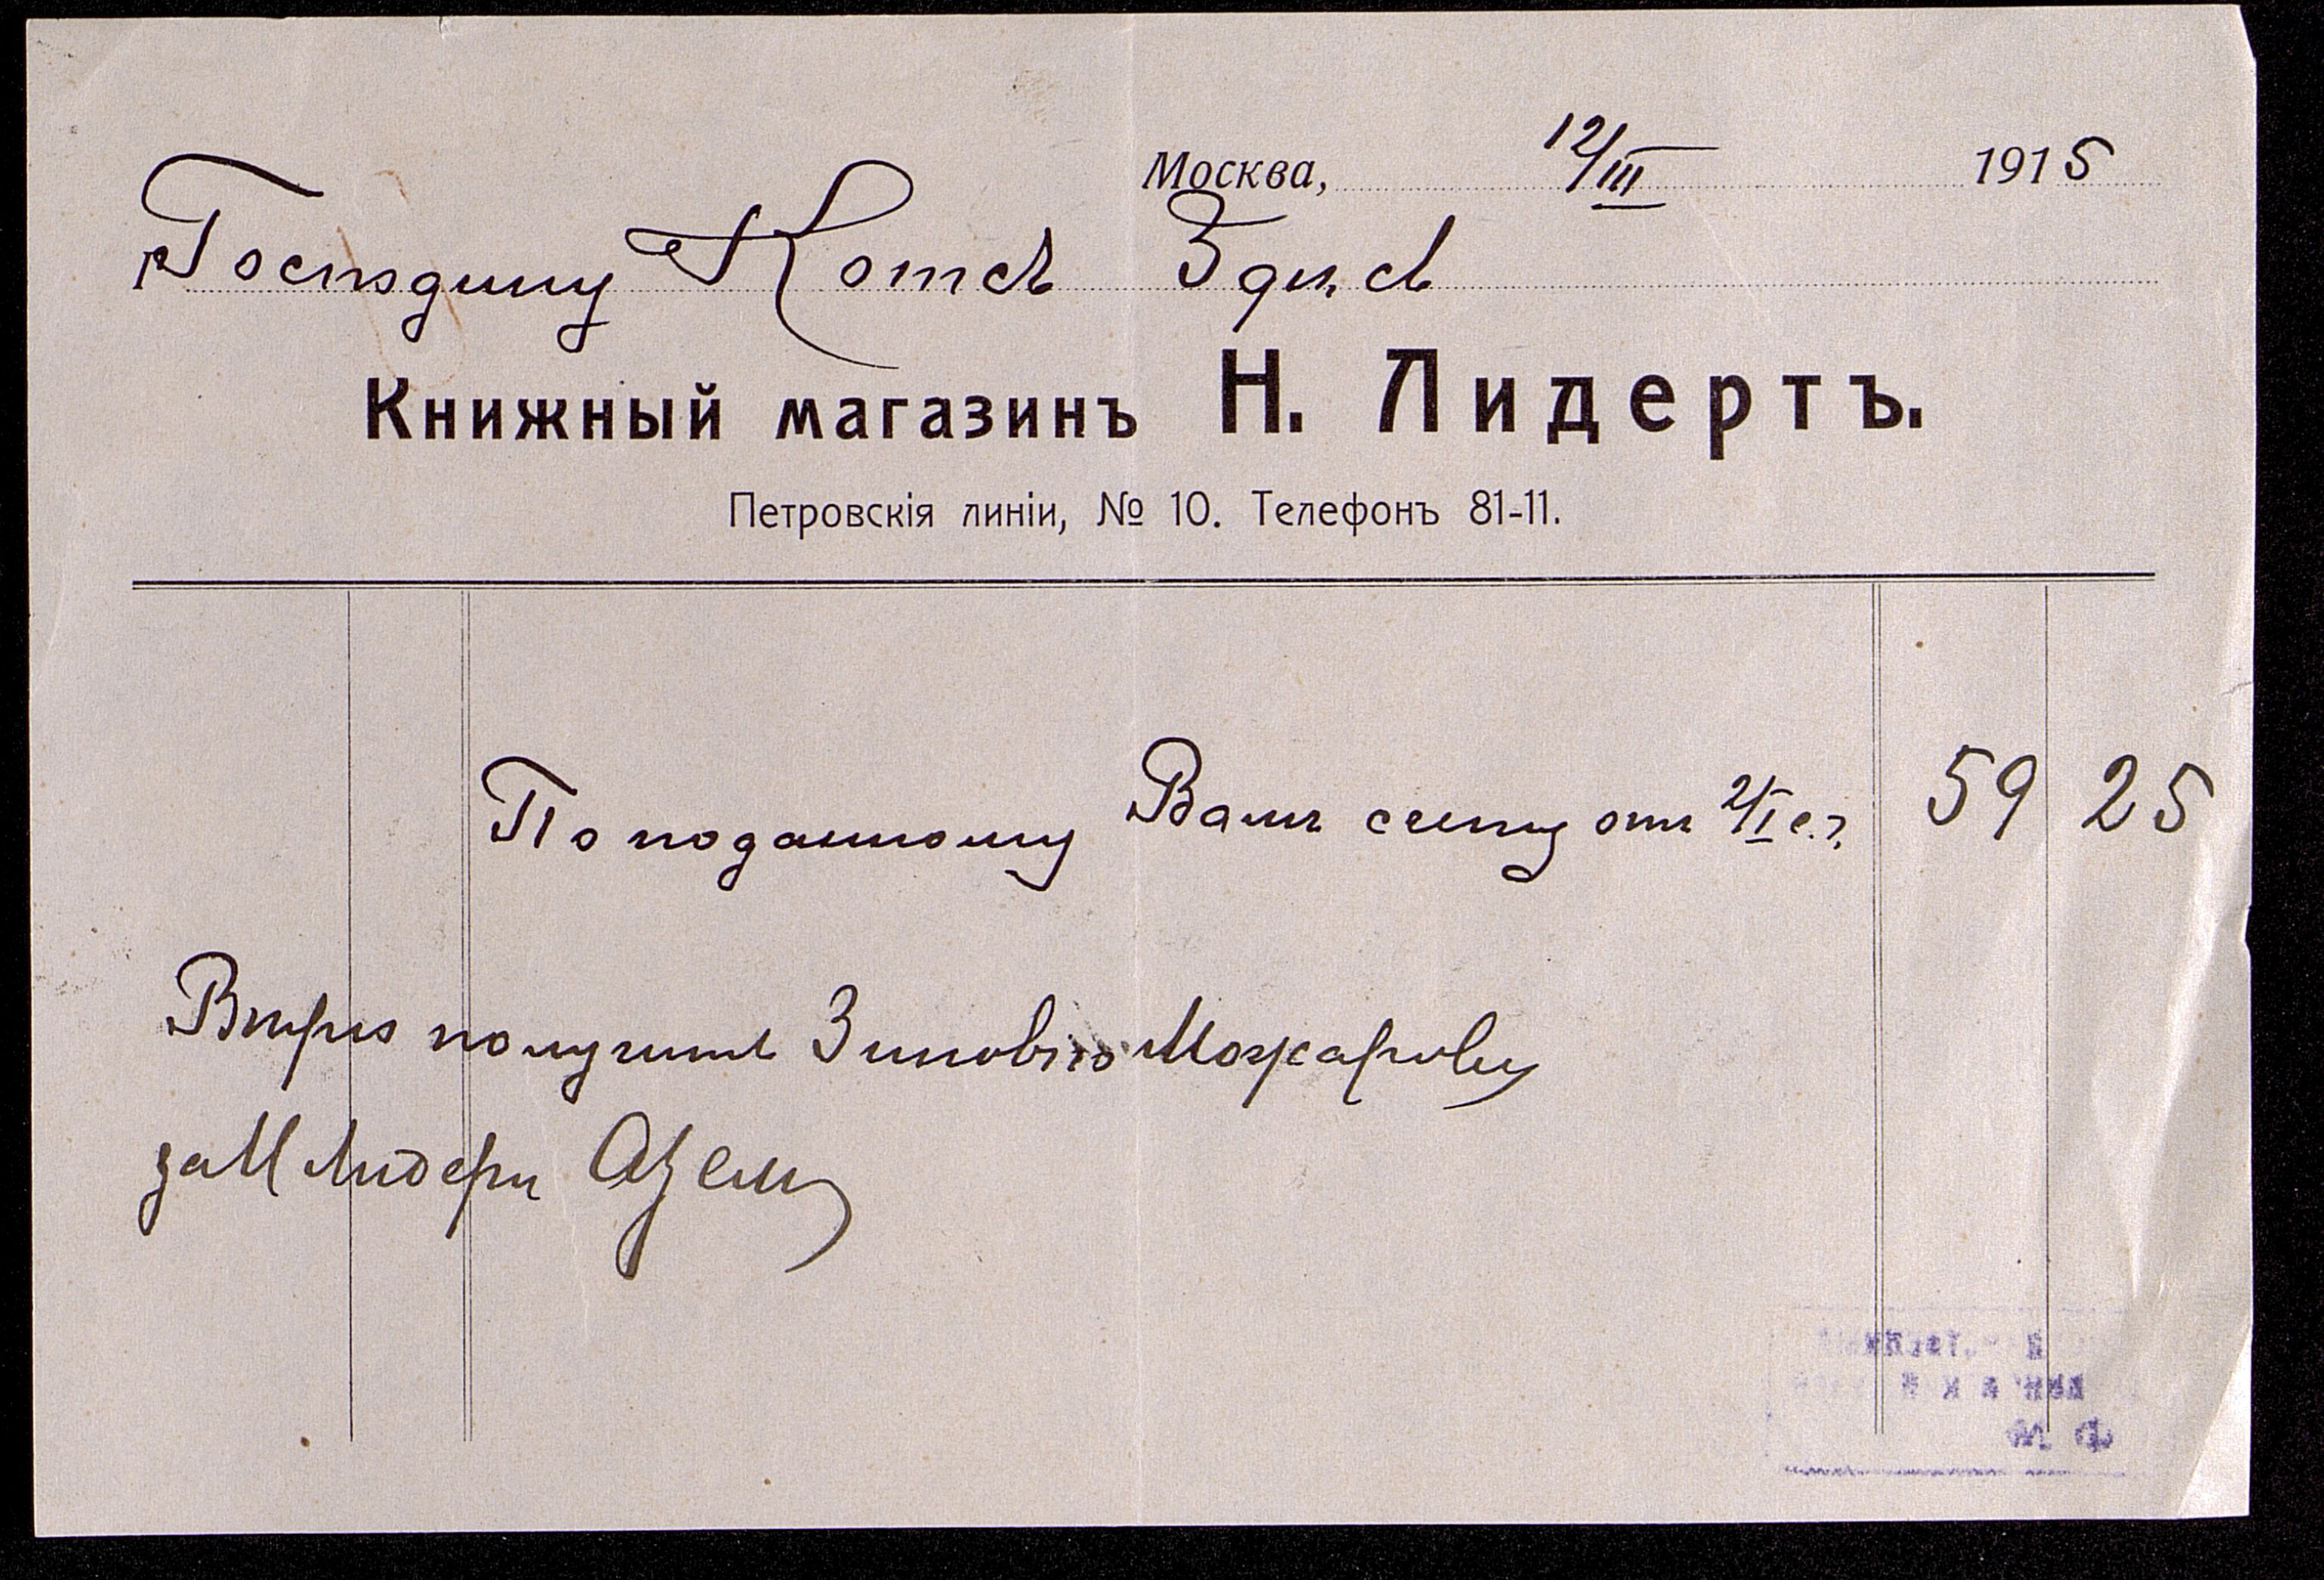 Москва, 12/III 1915
Господину Котсъ Здѣсь
Книжный магазинъ Н. Лидертъ.
Петровскія линіи, № 10. Телефонъ 81-11.
По поданному Вамъ счету отъ 2/I с.г. 59 25
Вѣрно получить Зиновію Можарову
за Н Лидертъ